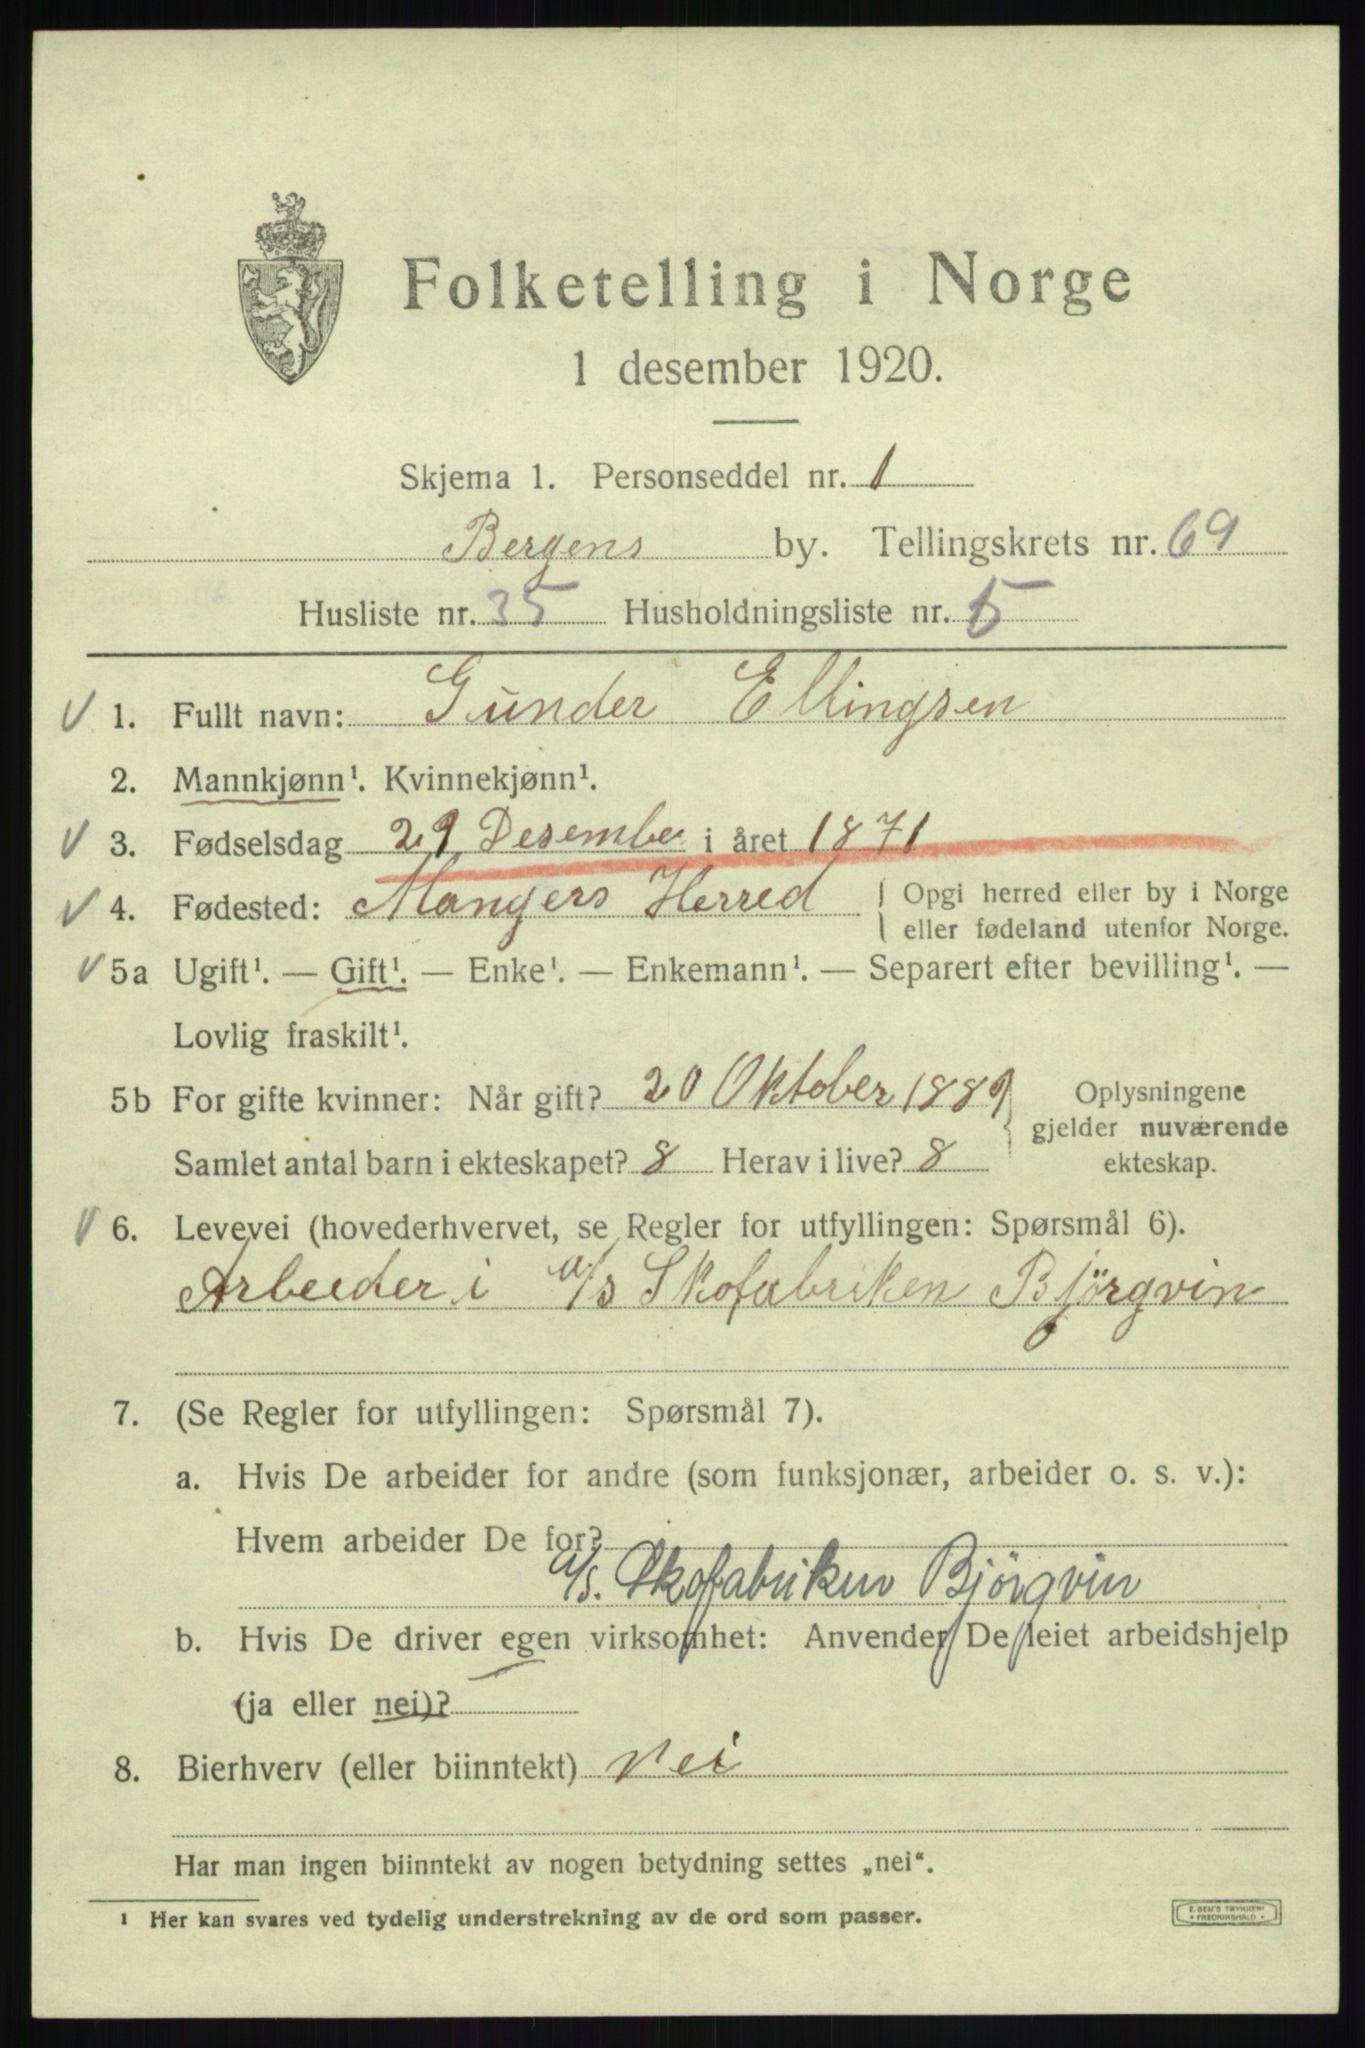 Folketelling i Norge
1 desember 1920.
Skjema 1. Personseddel nr. 1
Bergens by. Tellingskrets nr. 69
Husliste nr. 35 Husholdningsliste nr. 5
1. Fullt navn: Gunder Ellingsen
2. Mannkjønn¹. Kvinnekjønn¹.
3. Fødselsdag 29 Desember i året 1871
4. Fødested: Mangers Herred { Opgi herred eller by i Norge
eller fødeland utenfor Norge.
5a Ugift¹. — Gift¹. — Enke¹. — Enkemann¹. — Separert efter bevilling¹. —
Lovlig fraskilt¹.
5b For gifte kvinner: Når gift? 20 Oktober 1889 } Oplysningene
gjelder nuværende
Samlet antal barn i ekteskapet? 8 Herav i live? 8 ekteskap.
6. Levevei (hovederhvervet, se Regler for utfyllingen: Spørsmål 6).
Arbeider i a/s Skofabriken Björgvin
7. (Se Regler for utfyllingen: Spørsmål 7).
a. Hvis De arbeider for andre (som funksjonær, arbeider o. s. v.):
Hvem arbeider De for?
a/s. Skofabriken Björgvin
b. Hvis De driver egen virksomhet: Anvender De leiet arbeidshjelp
(ja eller nei)?
8. Bierhverv (eller biinntekt) nei
Har man ingen biinntekt av nogen betydning settes „nei“.
¹ Her kan svares ved tydelig understrekning av de ord som passer.
E. SEM'S TRYKKERI
FREDRIKSHALD